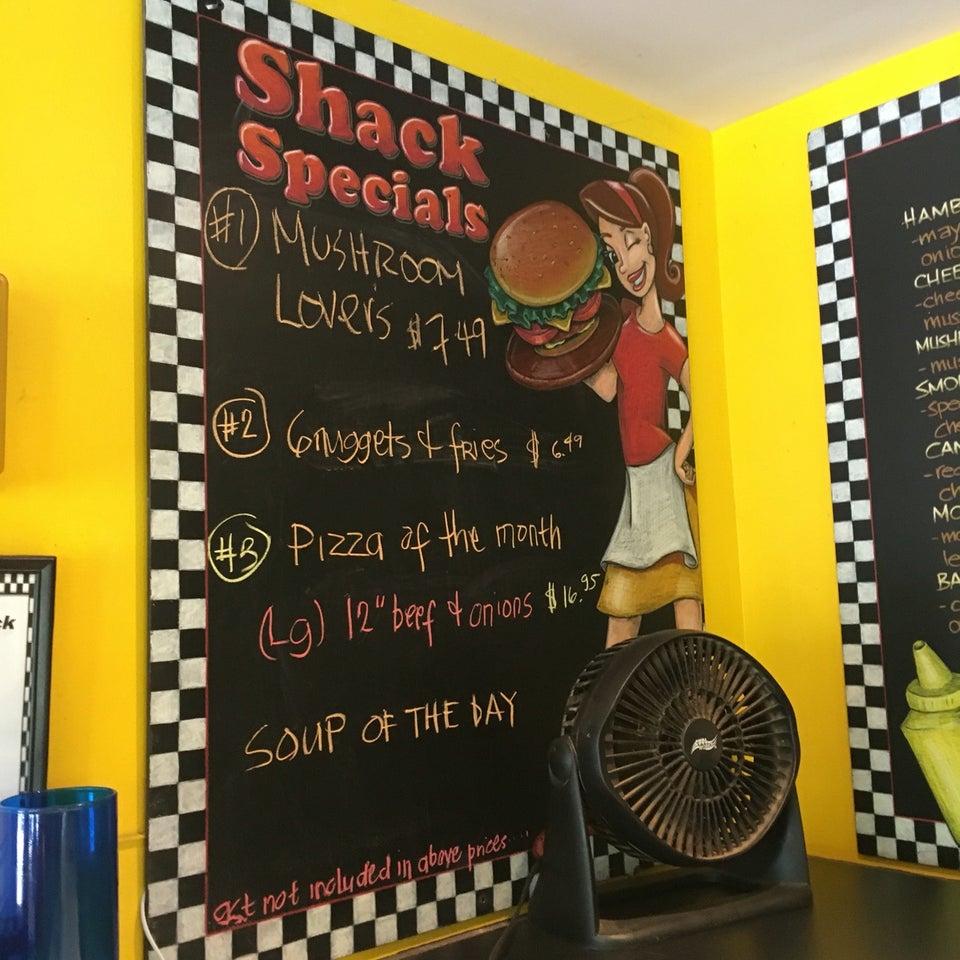 Shack
Specials
#1 MUSHROOM
Lovers $7.49
#2 6 nuggets & fries $ 6.49
#3 Pizza of the month
(Lg) 12" beef & onions $16.95
SOUP OF THE DAY
Gst not included in above prices...
HAMB
-may
onio
CHEE
-chee
mus
MUSH
- mus
SMO
-spe
che
CAN
-rec
ch
MO
-mo
le
BA